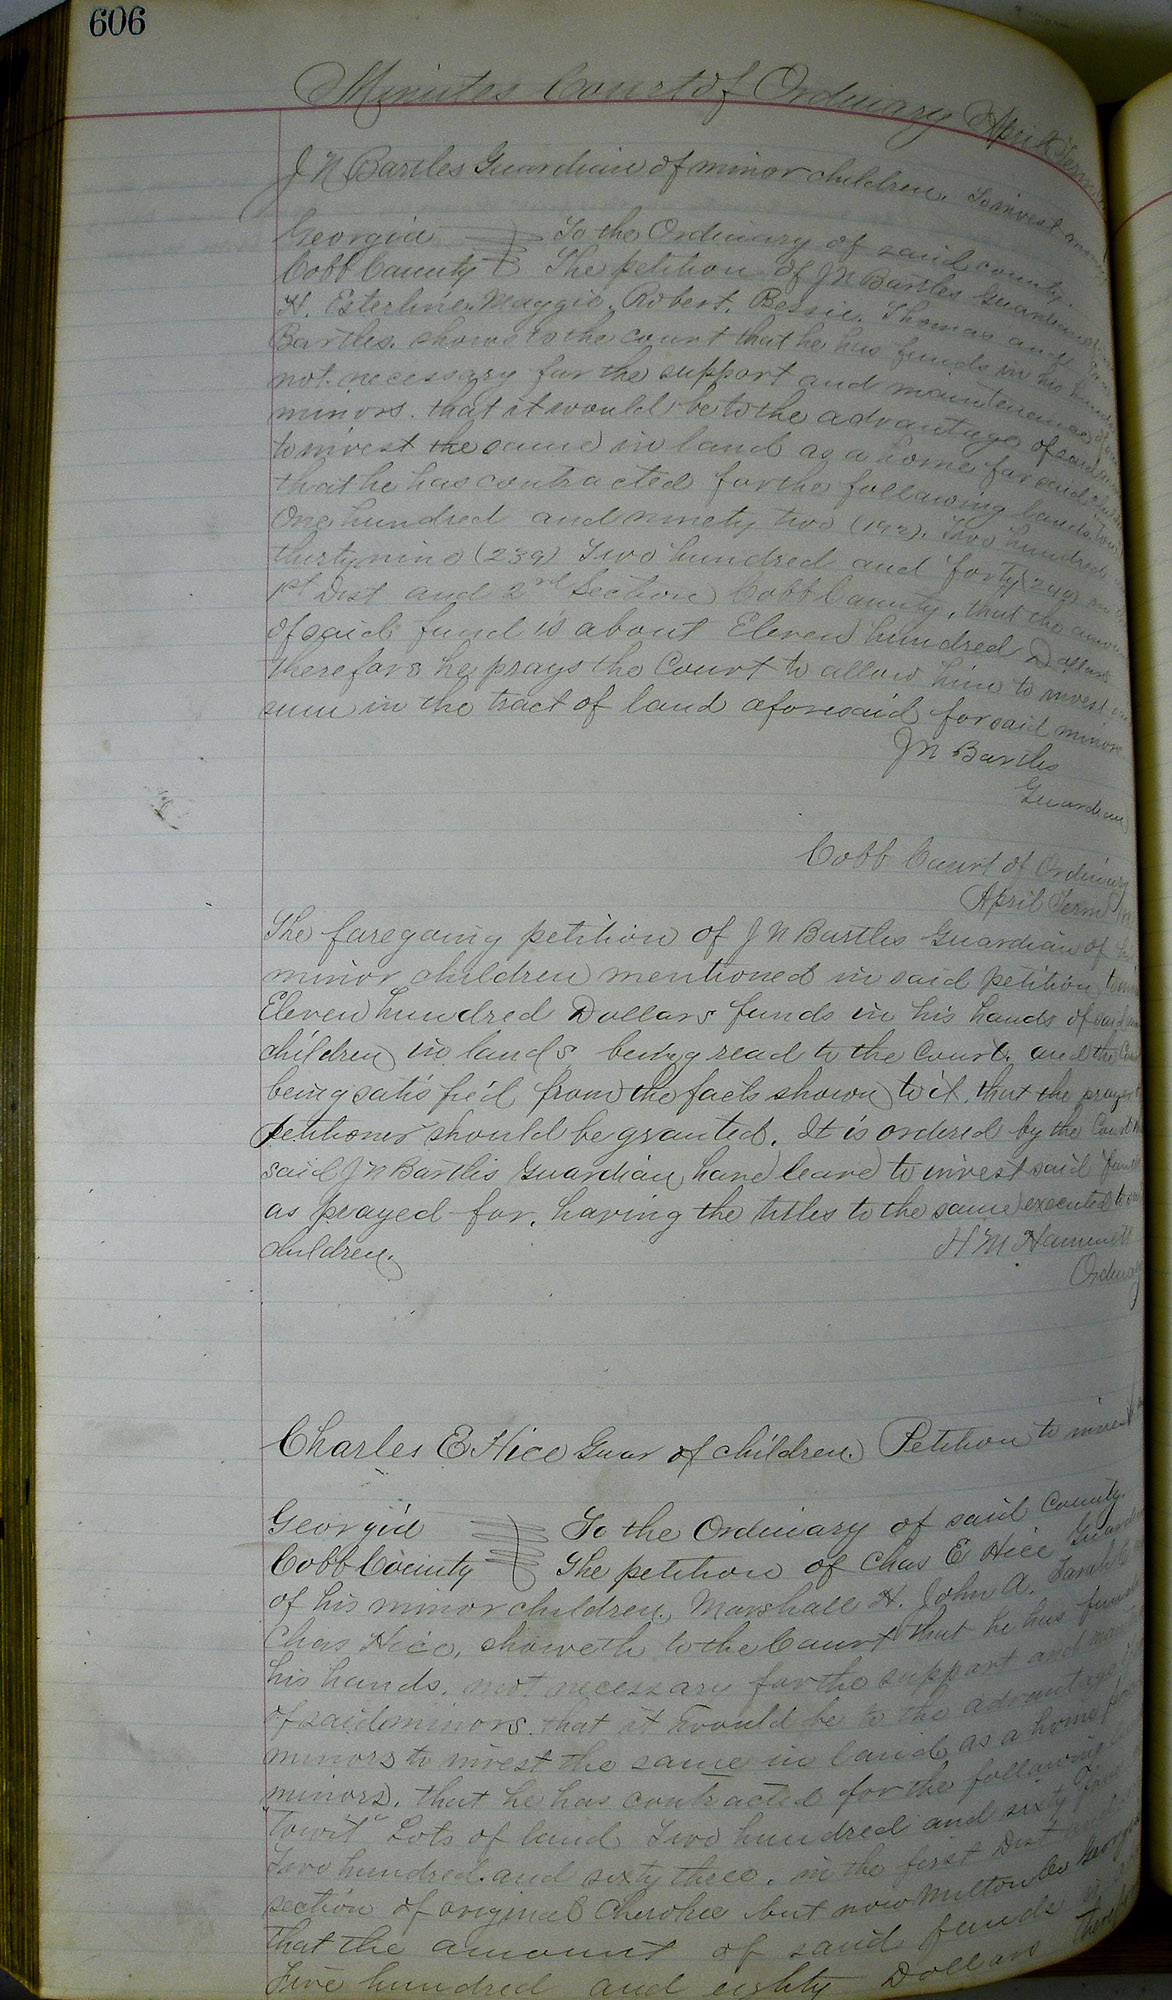 606
Minutes Court of Ordinary April Term
J N Bartles Guardian of minor children. To invest
Georgia To the Ordinary of said county.
Cobb County The petition of J N Bartles Guardian
H. Esterline. Maggie. Robert. Bessie. Thomas and
Bartles. shows to the court that he has funds in his hands
not necessary for the support and maintenance of
minors. that it would be to the advantage of said
to invest the same in land as a home for said
that he has contracted for the following lands
One hundred and ninety two (192). Two hundred
thirty nine (239) Two hundred and forty (240)
1st Dist and 2nd Section Cobb County, that the amount
of said fund is about Eleven hundred Dollars
therefore he prays the Court to allow him to invest
sum in the tract of land aforesaid for said minor
J N Bartles
Guardian
Cobb Court of Ordinary
April Term
The foregoing petition of J N Bartles Guardian of
minor children mentioned in said petition to
Eleven hundred Dollars funds in his hands of said
children in lands being read to the Court. and the
being satisfied from the facts shown to it, that the prayer
petitioner should be granted. It is ordered by the Court
said J N Bartles Guardian have leave to invest said
as prayed for, having the titles to the same executed to
children.
H M Hammett
Ordinary
Charles E Hice Guar of children. Petition to invest
Georgia To the Ordinary of said County.
Cobb County The petition of Chas E Hice
of his minor children, Marshall H. John A. Sarah
Chas Hice, showeth to the Court that he has funds
his hands, not necessary for the support and
of said minors. that it would be to the advantage
minors to invest the same in land as a home
minors, that he has contracted for the following
Towit" Lots of land Two hundred and sixty
Two hundred and sixty three. in the first Dist and
section of original Cherokee but now Milton Co Georgia
That the amount of said funds
Five hundred and eighty Dollars